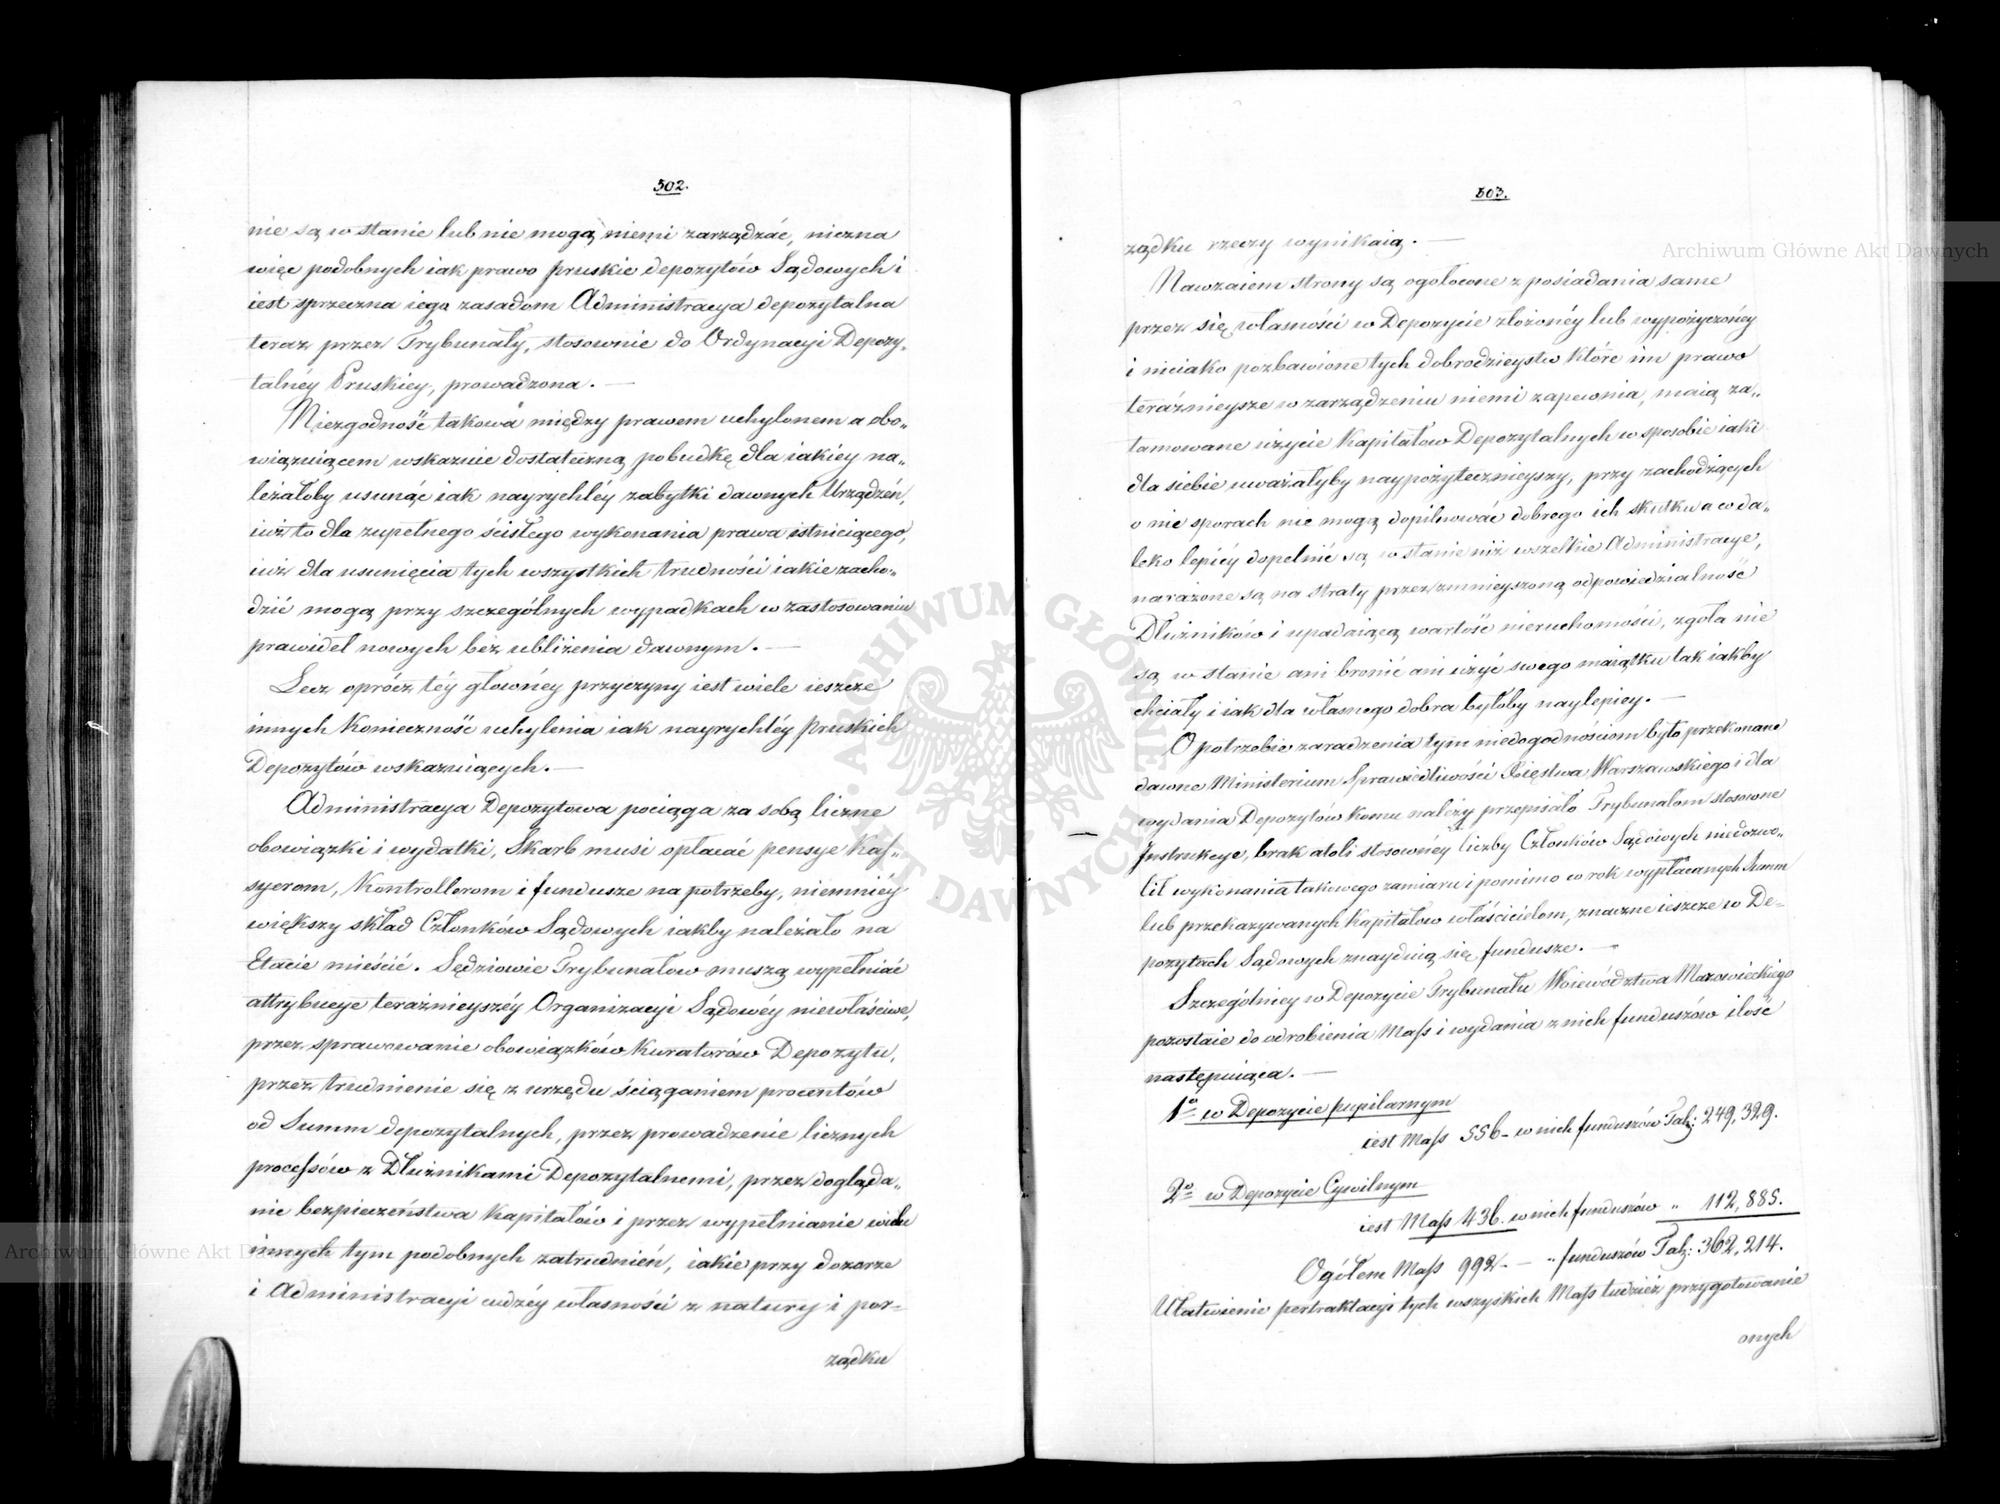 502.
nie są w stanie lub nie mogą niemi zarządzać, niezna
więc podobnych iak prawo pruskie depozytów Sądowych i
iest sprzeczna iego zasadom Administracya depozytalna
teraz przez Trybunały, stosownie do Ordynacyi Depozy„
talnéy Pruskiey, prowadzona. —
Niezgodność takowa między prawem uchylonem a obo„
wiązuiącem wskazuie dostateczną pobudkę dla iakiey na„
leżałoby usunąć iak nayrychléy zabytki dawnych Urządzeń,
iuż to dla zupełnego ścisłego wykonania prawa istnieiącego,
iuż dla usunięcia tych wszystkich trudności iakie zacho„
dzić mogą przy szczególnych wypadkach w zastosowaniu
prawideł nowych bez ubliżenia dawnym. —
Lecz oprócz téy głównéy przyczyny iest wiele ieszcze
innych konieczność uchylenia iak nayrychléy pruskich
Depozytów wskazuiących. —
Administracya Depozytowa pociąga za sobą liczne
obowiązki i wydatki, Skarb musi opłacać pensye Kas„
syerom, Kontrollerom i fundusze na potrzeby, niemniéy
większy skład Członków Sądowych iakby należało na
Etacie mieścić. Sędziowie Trybunałow muszą wypełniać
attrybucye teraźnieyszéy Organizacyi Sądowéy niewłaściwe,
przez sprawowanie obowiązków Kuratorów Depozytu,
przez trudnienie się z urzędu ściąganiem procentów
od Summ depozytalnych, przez prowadzenie licznych
processów z Dłużnikami Depozytalnemi, przez dogląda„
nie bezpieczeństwa Kapitałów i przez wypełnianie wielu
innych tym podobnych zatrudnień, iakie przy dozorze
i Administracyi cudzéy własności z natury i por-
ządku
503.
ządku rzeczy wynikaią. —
Nawzaiem strony są ogołocone z posiadania same
przez się własności w Depozycie złożonéy lub wypożyczonéy
i nieiako pozbawione tych dobrodzieystw które im prawo
teraźnieysze w zarządzeniu niemi zapewnia, maią za„
tamowane użycie Kapitałow Depozytalnych w sposobie iaki
dla siebie uważałyby naypożytecznieyszy, przy zachodzących
o nie sporach nie mogą dopilnować dobrego ich skutku a co da„
leko lepiéy dopełnić są w stanie niż wszelkie Administracye,
narażone są na straty przez zmnieyszoną odpowiedzialność
Dłużników i upadaiącą wartość nieruchomości, zgoła nie
są w stanie ani bronić ani użyć swego maiątku tak iakby
chciały i iak dla własnego dobra byłoby naylepiey. —
O potrzebie zaradzenia tym niedogodnościom było przekonane
dawne Ministerium Sprawiedliwości Xięstwa Warszawskiego i dla
wydania Depozytów komu należy przepisało Trybunałom stosowne
Instrukcye, brak atoli stosownéy liczby Członków Sądowych niedozwo„
lił wykonania takowego zamiaru i pomimo co rok wypłacanych Summ
lub przekazywanych Kapitałow właścicielom, znaczne ieszcze w De-
pozytach Sądowych znayduią się fundusze. —
Szczególniey w Depozycie Trybunału Woiewództwa Mazowieckiego
pozostaie do odrobienia Mass i wydania z nich funduszów ilość
następuiąca. —
1º w Depozycie pupilarnym
iest Mass 556 - w nich funduszów Tal: 249,329.
2º w Depozycie Cywilnym
iest Mass 436. w nich funduszów „ 112,885.
Ogółem Mass 992 - — „ funduszów Tal: 362,214.
Ułatwienie pertraktacyi tych wszyskich Mass tudzież przygotowanie
onych
Archiwum Główne Akt Dawnych
Archiwum Główne Akt D
ARCHIWUM GŁÓWNE AKT DAWNYCH